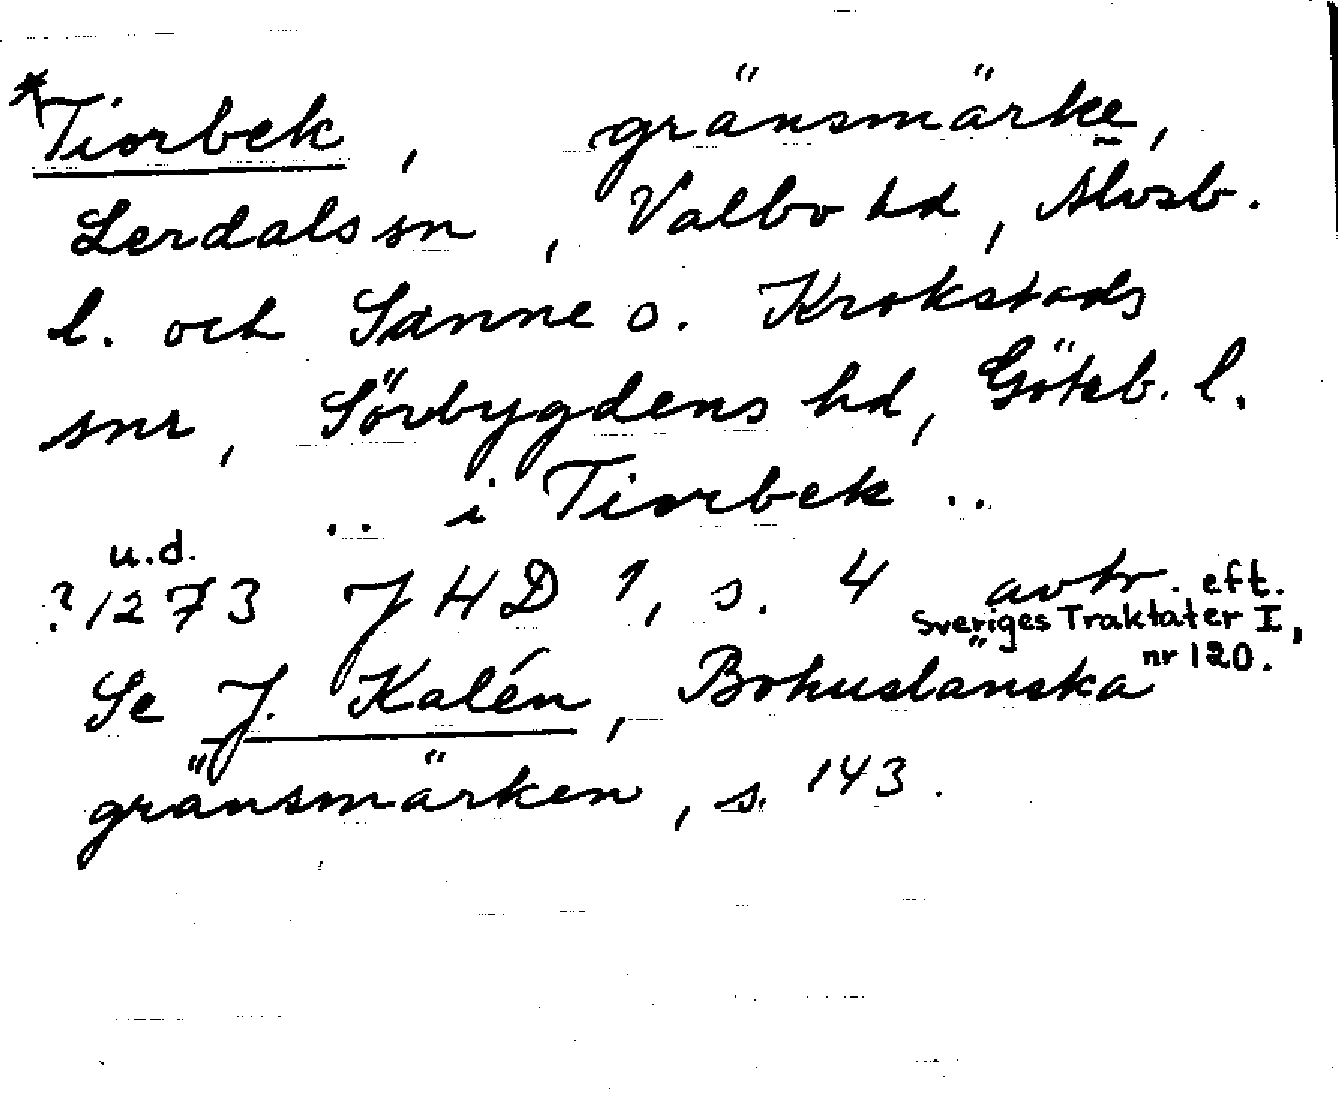 *Tiorbek, gränsmärke,
Lerdals sn, Valbo hd, Älvsb.
l. och Sanne o. Krokstads
snr, Sörbygdens hd, Göteb. l.
.. i Tiorbek ..
u.d.
?1273 JHD 1, s. 4 avtr. eft.
Sveriges Traktater I,
nr 120.
Se J. Kalén, Bohuslänska
gränsmärken, s. 143.